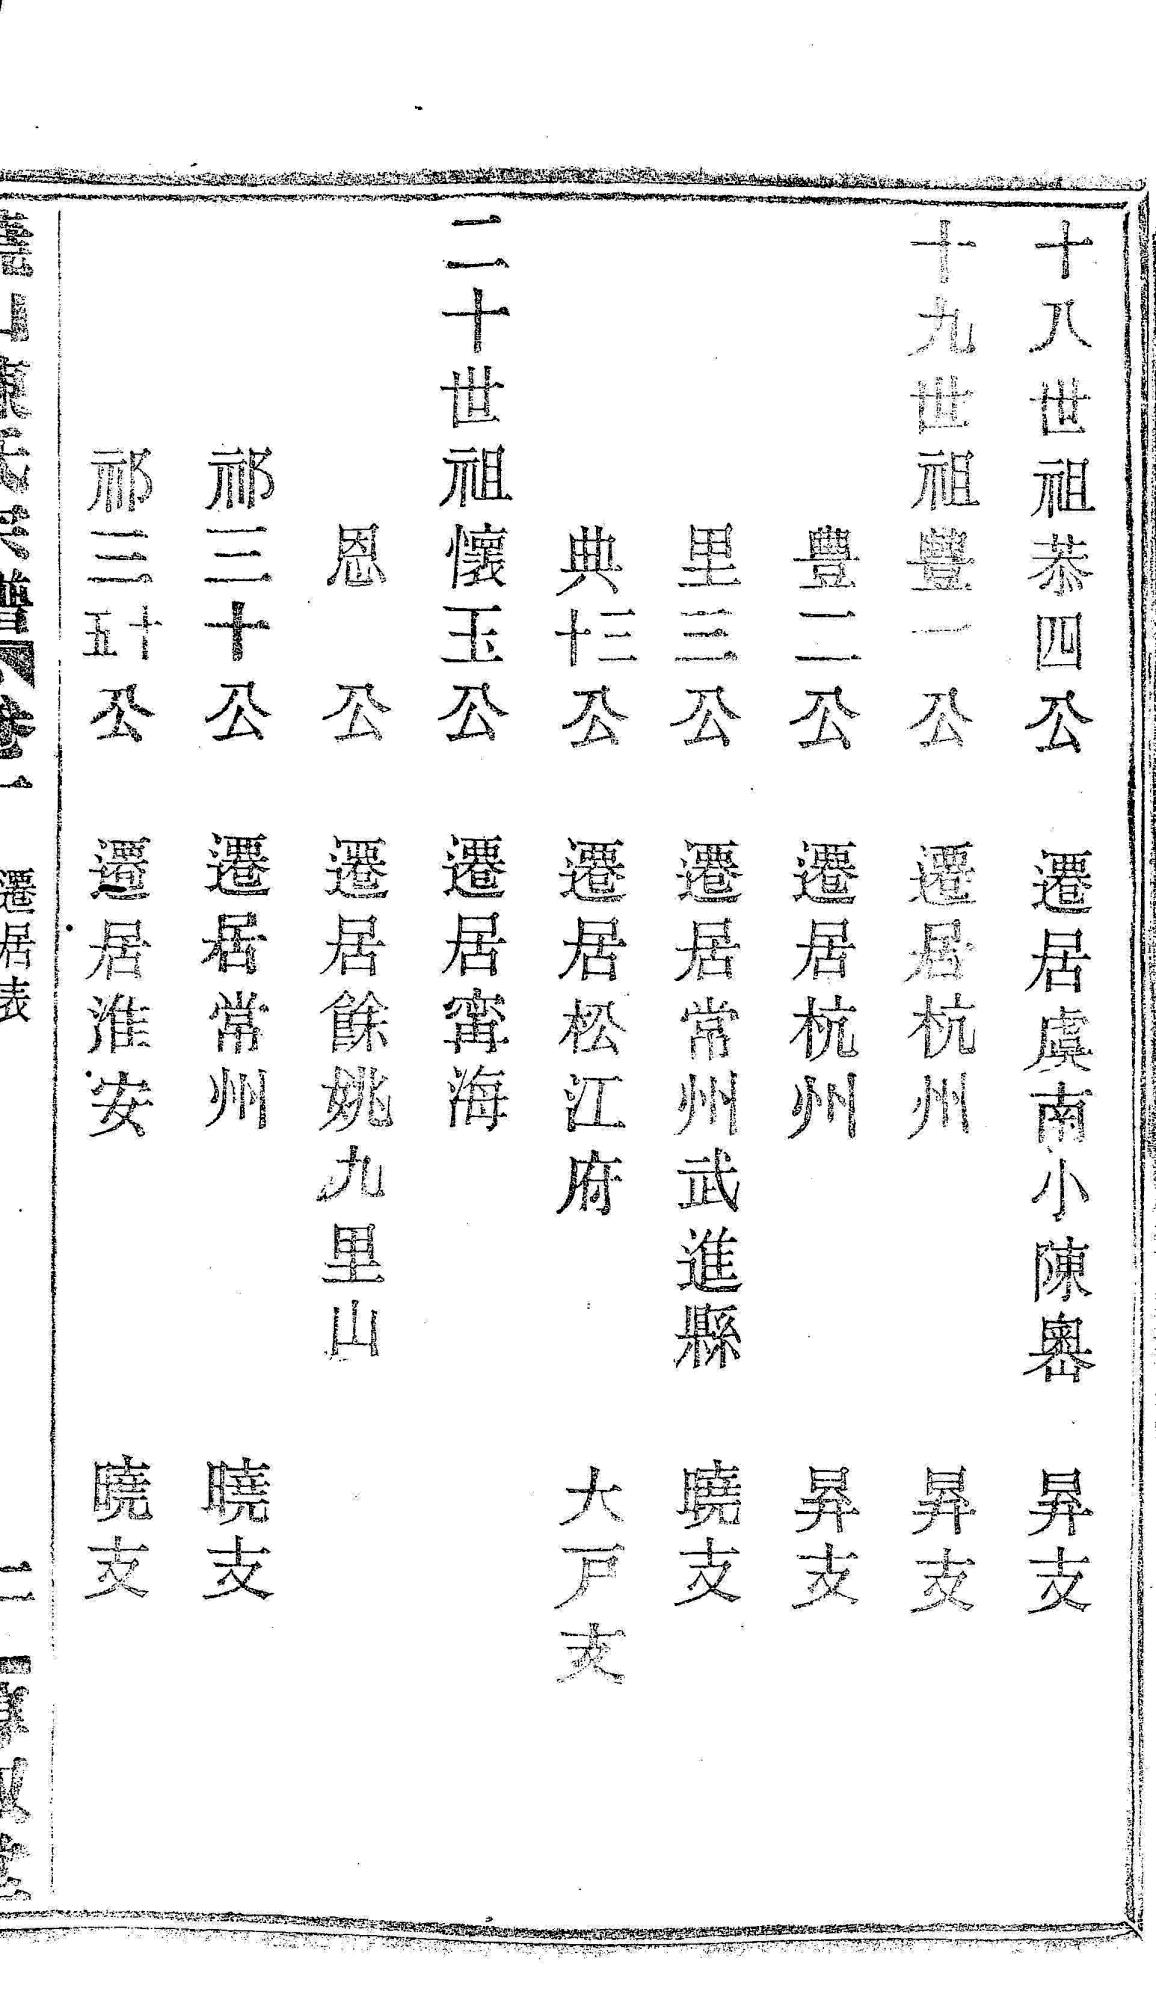 十八世祖恭四公　遷居虞南小陳嶴　昇支
十九世祖豐一公　遷居杭州　昇支
豐二公　遷居杭州　昇支
里三公　遷居常州武進縣　曉支
典十三公　遷居松江府　大戸支
二十世祖懷玉公　遷居甯海
恩　公　遷居餘姚九里山
祁三十公　遷居常州　曉支
祁三十五公　遷居淮安　曉支
山陳氏宗譜　卷一　遷居表　二　堂